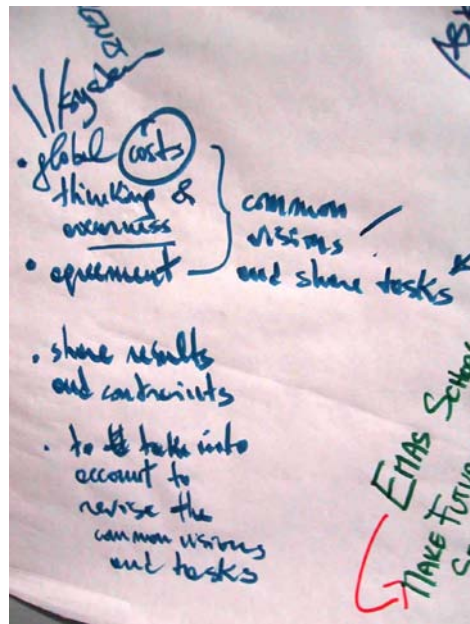 • global costs
thinking &
awarness
• agreement
common
visions
and share tasks
• share results
and contraints
• to take into
account to
revise the
common visions
and tasks
EMAS SCHOOL
MAKE FUTU